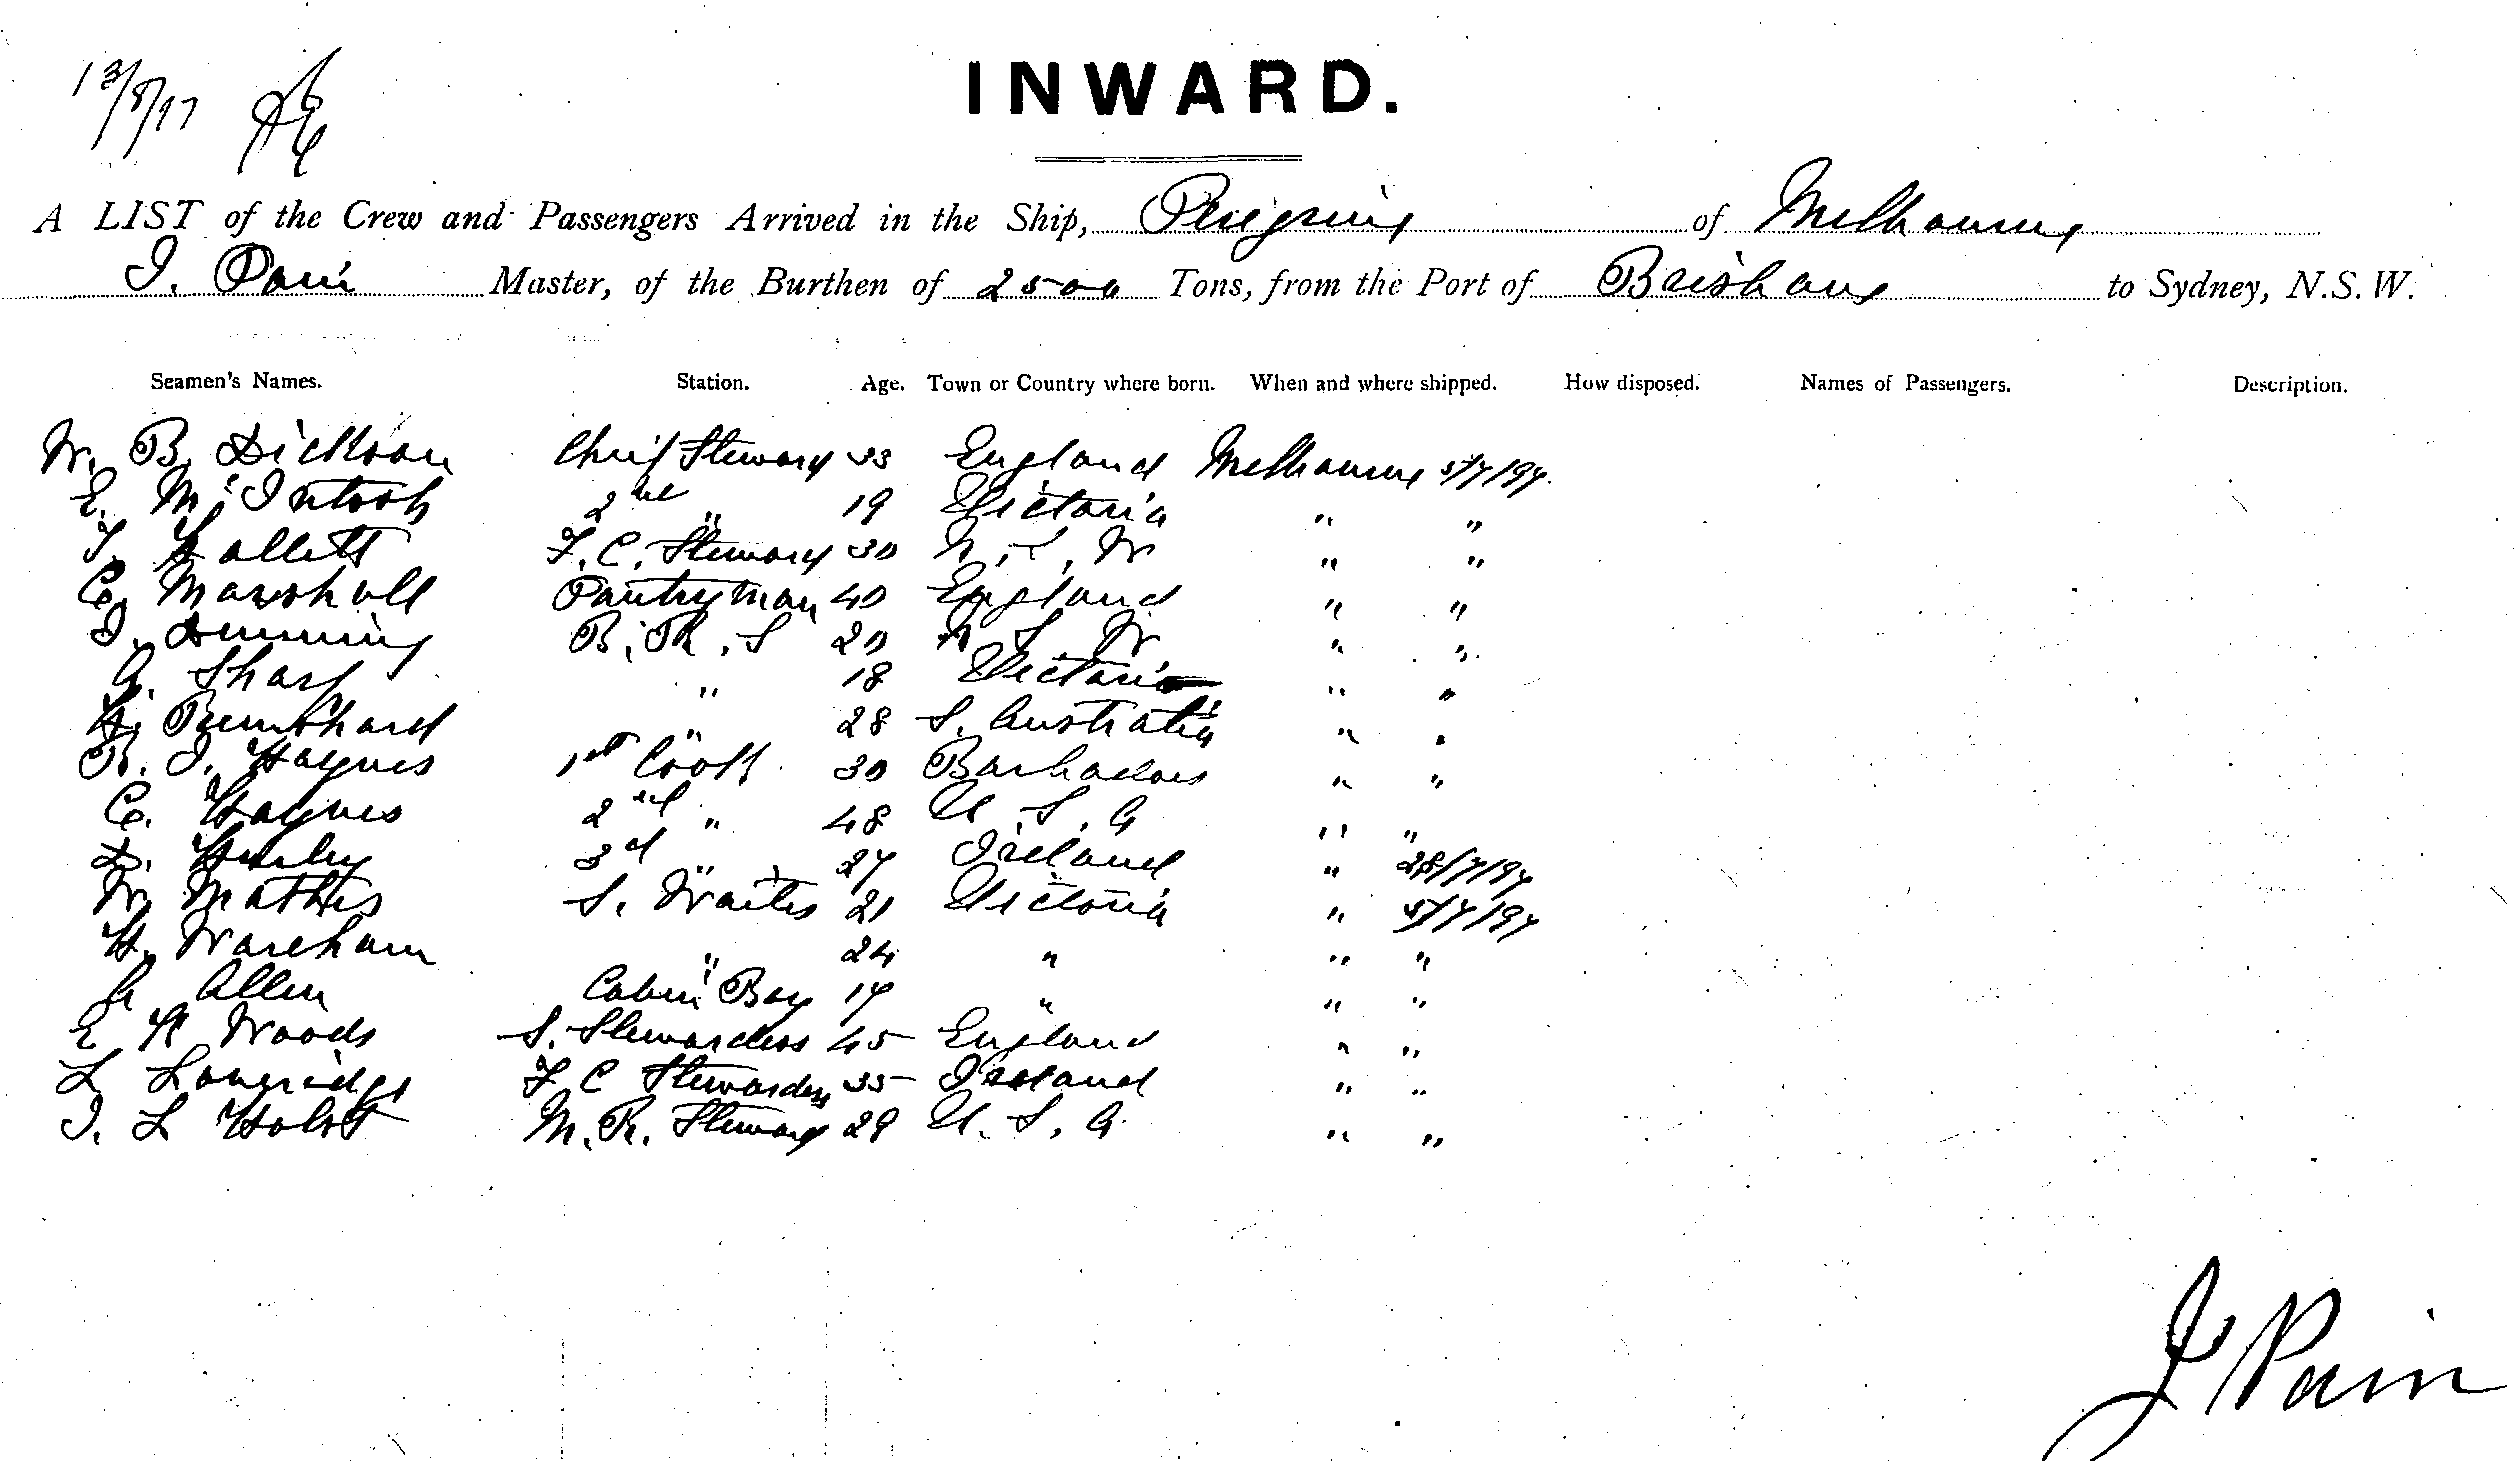 13/8/97
INWARD.
A LIST of the Crew and Passengers Arrived in the Ship, Peregrine of Melbourne
J. Pain Master, of the Burthen of 2500 Tons, from the Port of Brisbane to Sydney, N.S.W.
Seamen's Names. Station. Age. Town or Country where born. When and where shipped. How disposed. Names of Passengers. Description.
W. B. Dickson Chief Steward 33 England Melbourne 5/7/97.
E. McIntosh 2nd " 19 Victoria " "
T. Hallett F. C. Steward 30 N. S. W " "
C. Marshall Pantryman 40 England " "
J. Dunning B. R. S 20 N S W " "
G. Sharp " 18 Victoria " "
H. " 28 S. Australia " "
R. J. Haynes 1st Cook 30 Barbadoes " "
C. Haynes 2nd " 48 U. S. A " "
D. Hurley 3d " 27 Ireland " 28/7/97
W. Mathes S. Waiter 21 Victoria " 5/7/97
H. Wareham " 24 " " "
Allen Cabin Boy 17 " " "
E Woods S. Stewardess 45 England " "
L Longridge F C Stewardess 35 Ireland " "
J. L Holst M. R. Steward 29 U. S. A " "
J Pain